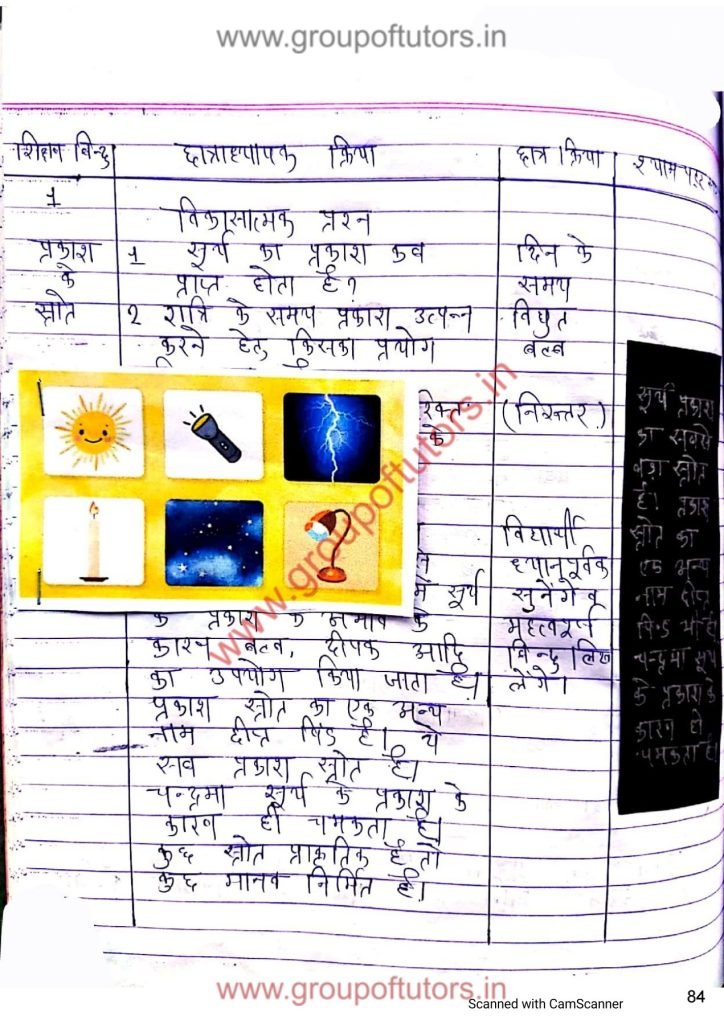 www.groupoftutors.in
शिक्षण बिन्दु
छात्राध्यापक क्रिया
छात्र क्रिया
श्यामपट्ट
1
प्रकाश
के
स्रोत
विकासात्मक प्रश्न
1 सूर्य का प्रकाश कब
प्राप्त होता है?
2 रात्रि के समय प्रकाश उत्पन्न
करने हेतु किसका प्रयोग
के
मे सूर्य
के प्रकाश के अभाव के
कारण बल्ब, दीपक आदि
का उपयोग किया जाता है।
प्रकाश स्रोत का एक अन्य
नाम दीप्त पिंड है। ये
सब प्रकाश स्रोत है।
चन्द्रमा सूर्य के प्रकाश के
कारन ही चमकता है।
कुछ स्रोत प्राकृतिक है तो
कुछ मानव निर्मित है।
दिन के
समय
विधुत
बल्ब
(निरन्तर)
विद्यार्थी
ध्यानपूर्वक
सुनेंगे व
महत्वपूर्ण
बिन्दु लिख
लेंगे।
सूर्य प्रकाश
का सबसे
बड़ा स्रोत
है। प्रकाश
स्रोत का
एक अन्य
नाम दीप्त
पिंड है।
चन्द्रमा सूर्य
के प्रकाश के
कारन ही
चमकता है।
www.groupoftutors.in
www.groupoftutors.in
84
Scanned with CamScanner